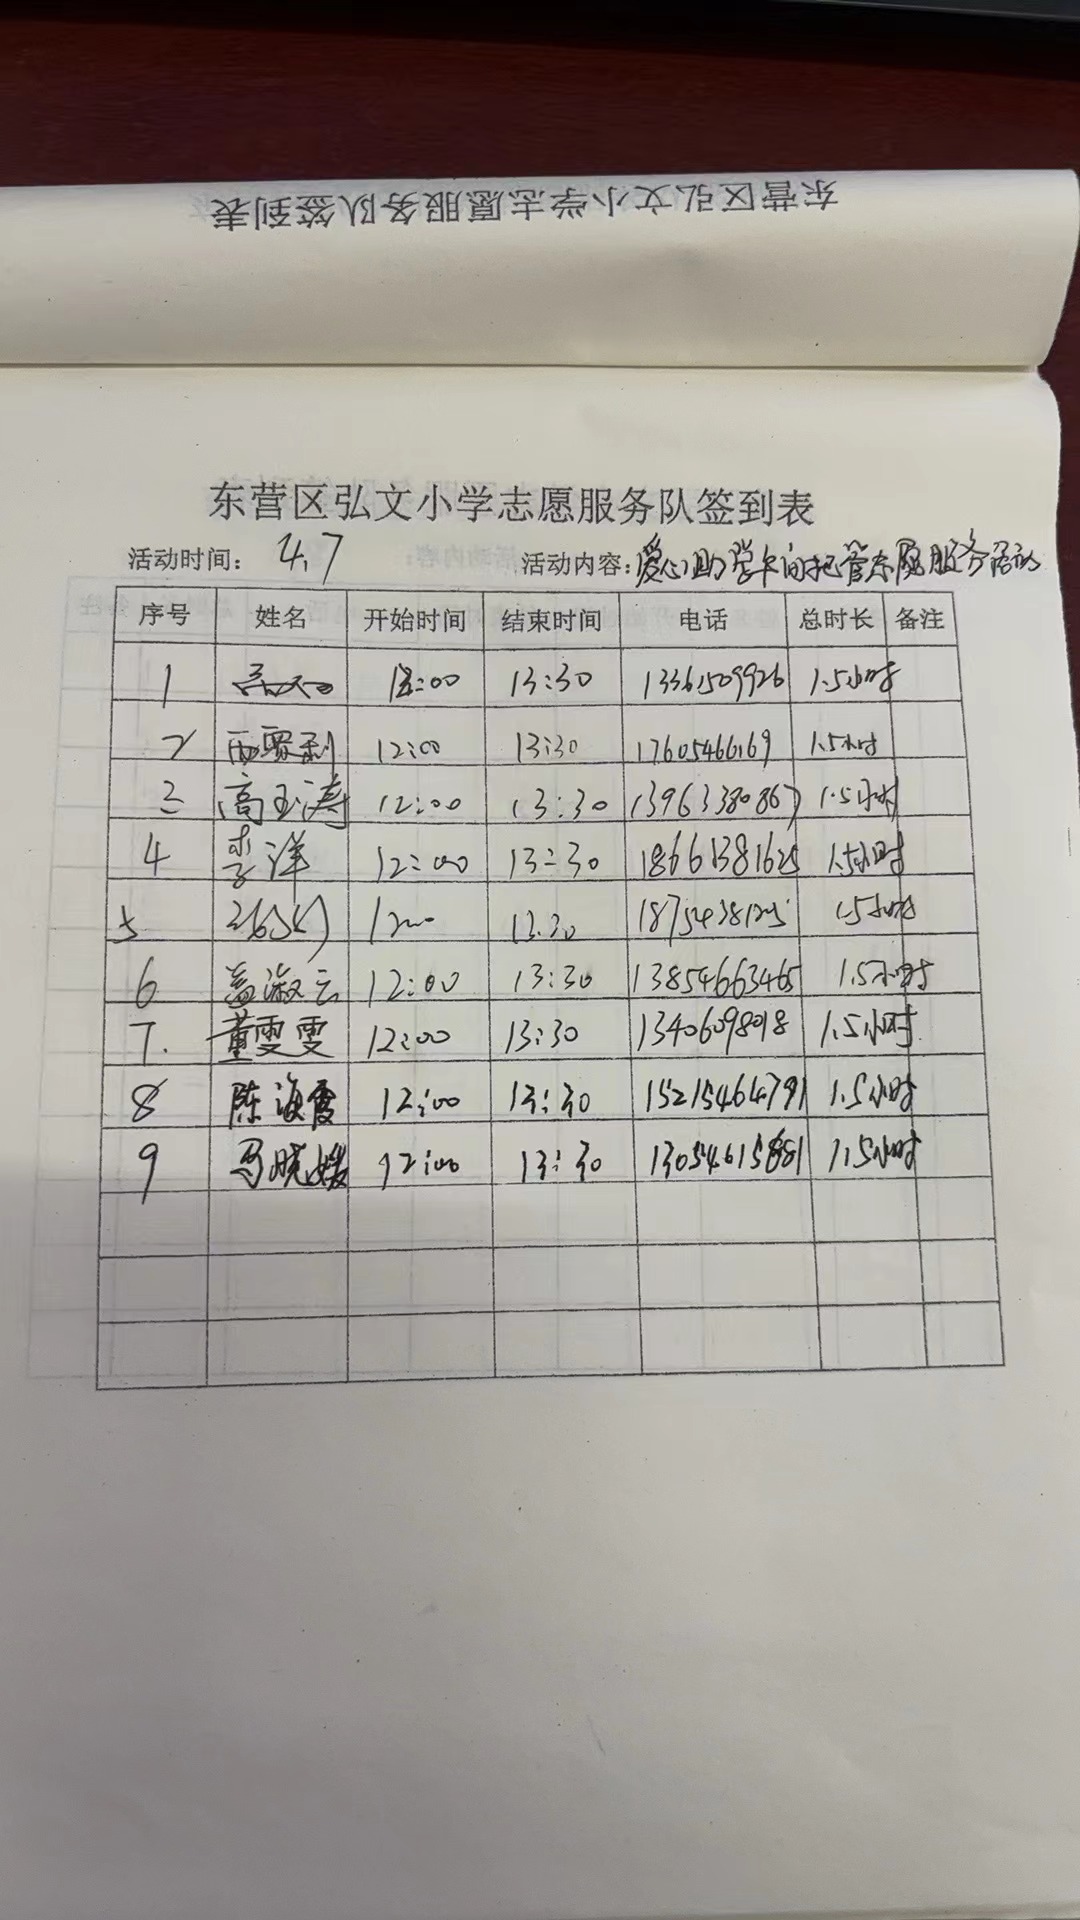 东营区弘文小学志愿服务队签到表
东营区弘文小学志愿服务队签到表
活动时间: 4.7 活动内容: 爱心助学午间托管志愿服务活动
序号 姓名 开始时间 结束时间 电话 总时长 备注
1 12:00 13:30 13361509926 1.5小时
2 12:00 13:30 17605466169 1.5小时
3 高玉涛 12:00 13:30 13963380867 1.5小时
4 李洋 12:00 13:30 18661381625 1.5小时
5 1200 13:30 1.5小时
6 盖淑云 12:00 13:30 13854663465 1.5小时
7. 董雯雯 12:00 13:30 13406098018 1.5小时
8 陈海霞 12:00 13:30 15215464791 1.5小时
9 马晓媛 12:00 13:30 13054615881 1.5小时